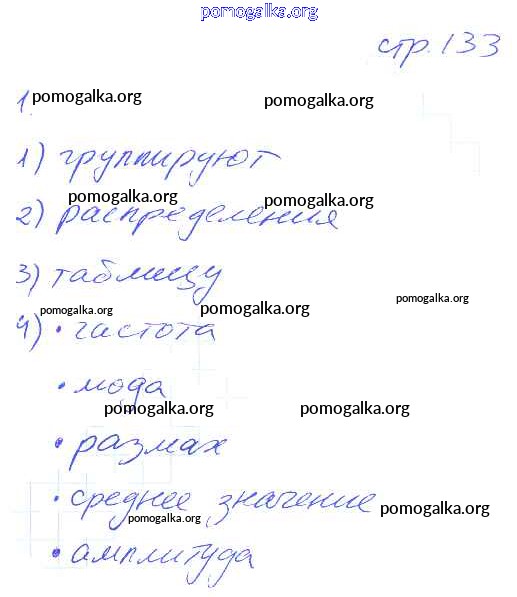 pomogalka.org
стр. 133
1. pomogalka.org pomogalka.org
1) группируют
pomogalka.org pomogalka.org
2) распределения
3) таблицу
pomogalka.org pomogalka.org pomogalka.org
4) • частота
• мода
pomogalka.org pomogalka.org
• размах
• среднее значение
pomogalka.org pomogalka.org
• амплитуда